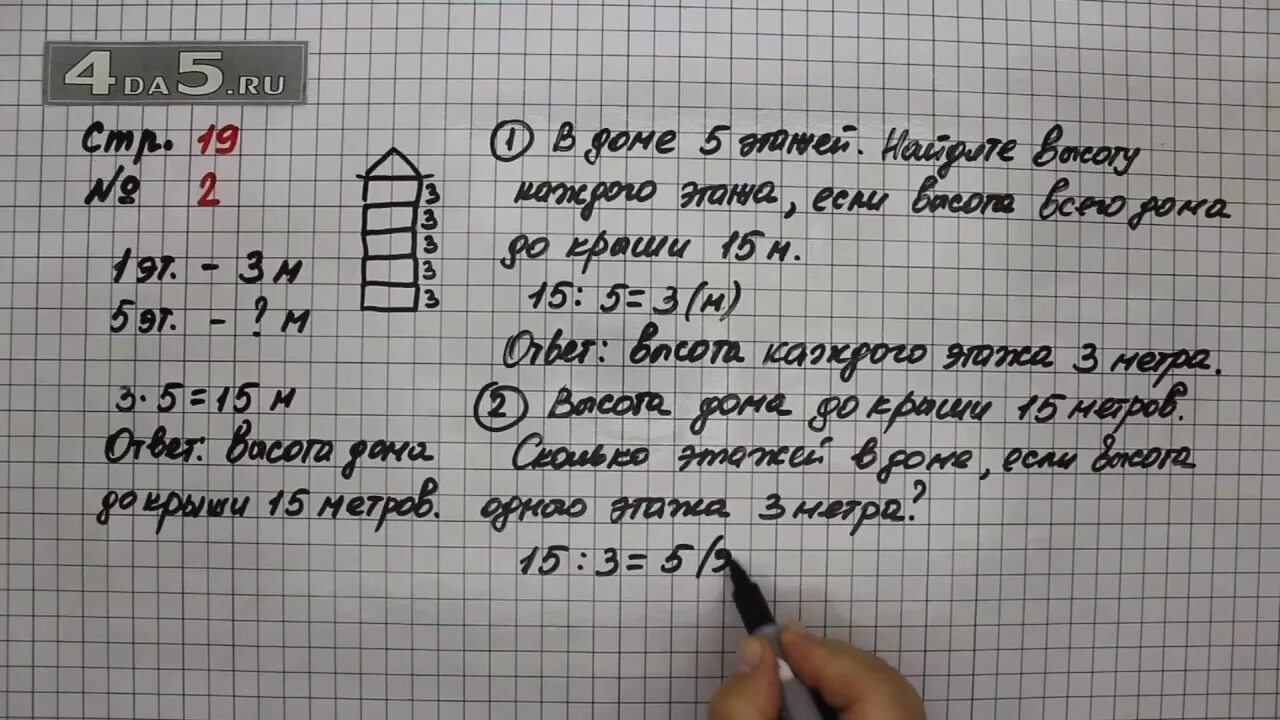 4DA5.RU
Стр. 19
№ 2
3
3
3
3
3
1 эт. - 3 м
5 эт. - ? м
3 · 5 = 15 м
Ответ: высота дома
до крыши 15 метров.
1 В доме 5 этажей. Найдите высоту
каждого этажа, если высота всего дома
до крыши 15 м.
15 : 5 = 3 (м)
Ответ: высота каждого этажа 3 метра.
2 Высота дома до крыши 15 метров.
Сколько этажей в доме, если высота
одного этажа 3 метра?
15 : 3 = 5 (э